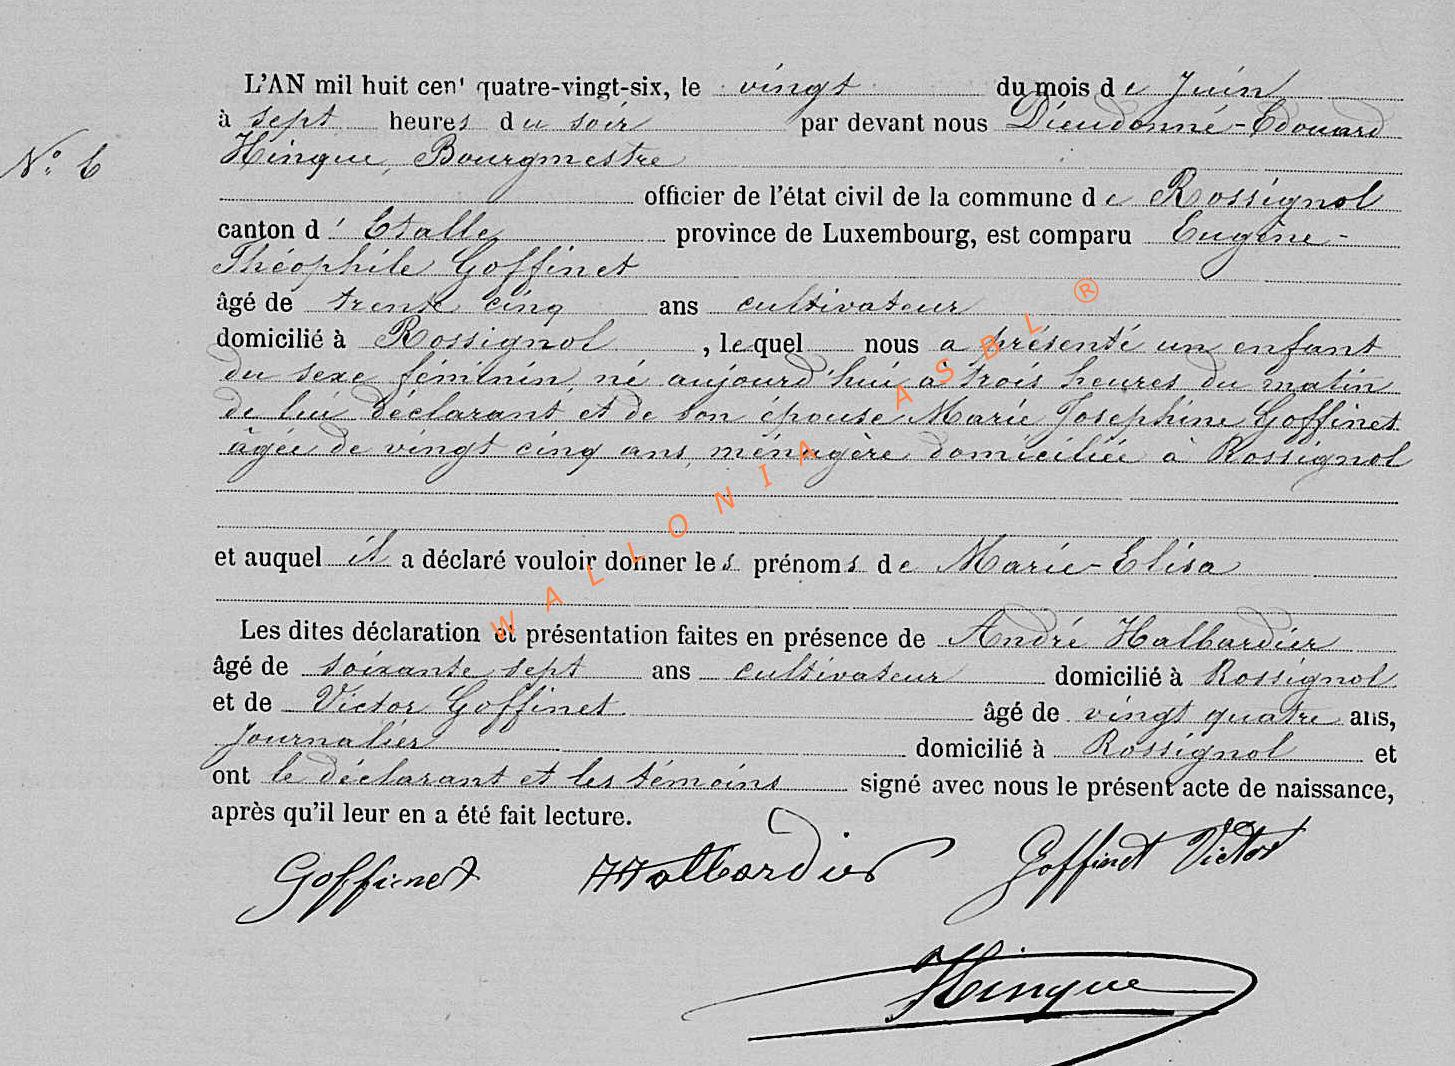 L'AN mil huit cen' quatre-vingt-six, le vingt du mois de Juin
à sept heures du soir par devant nous Dieudonné-Edouard
N° 6
Hinque, Bourgmestre
officier de l'état civil de la commune de Rossignol
canton d'Etalle province de Luxembourg, est comparu Eugène-
Théophile Goffinet
âgé de trente cinq ans cultivateur
domicilié à Rossignol, lequel nous a présenté un enfant
du sexe féminin, né aujourd'hui à trois heures du matin
de lui déclarant et de son épouse Marie Josephine Goffinet
âgée de vingt cinq ans, ménagère domiciliée à Rossignol
et auquel il a déclaré vouloir donner les prénoms de Marie-Elisa
Les dites déclaration et présentation faites en présence de André Halbardier
âgé de soixante sept ans cultivateur domicilié à Rossignol
et de Victor Goffinet âgé de vingt quatre ans,
journalier domicilié à Rossignol et
ont le déclarant et les témoins signé avec nous le présent acte de naissance,
après qu'il leur en a été fait lecture.
Goffinet Halbardier Goffinet Victor
Hinque
WALLONIA ASBL ®